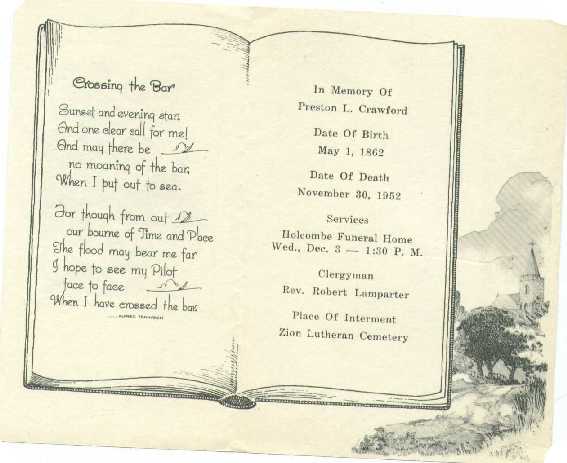 Crossing the Bar
Sunset and evening star,
And one clear call for me!
And may there be
no moaning of the bar,
When I put out to sea.
For though from out
our bourne of Time and Place
The flood may bear me far
I hope to see my Pilot
face to face
When I have crossed the bar.
ALFRED TENNYSON
In Memory Of
Preston L. Crawford
Date Of Birth
May 1, 1862
Date Of Death
November 30, 1952
Services
Holcombe Funeral Home
Wed., Dec. 3 — 1:30 P. M.
Clergyman
Rev. Robert Lamparter
Place Of Interment
Zion Lutheran Cemetery